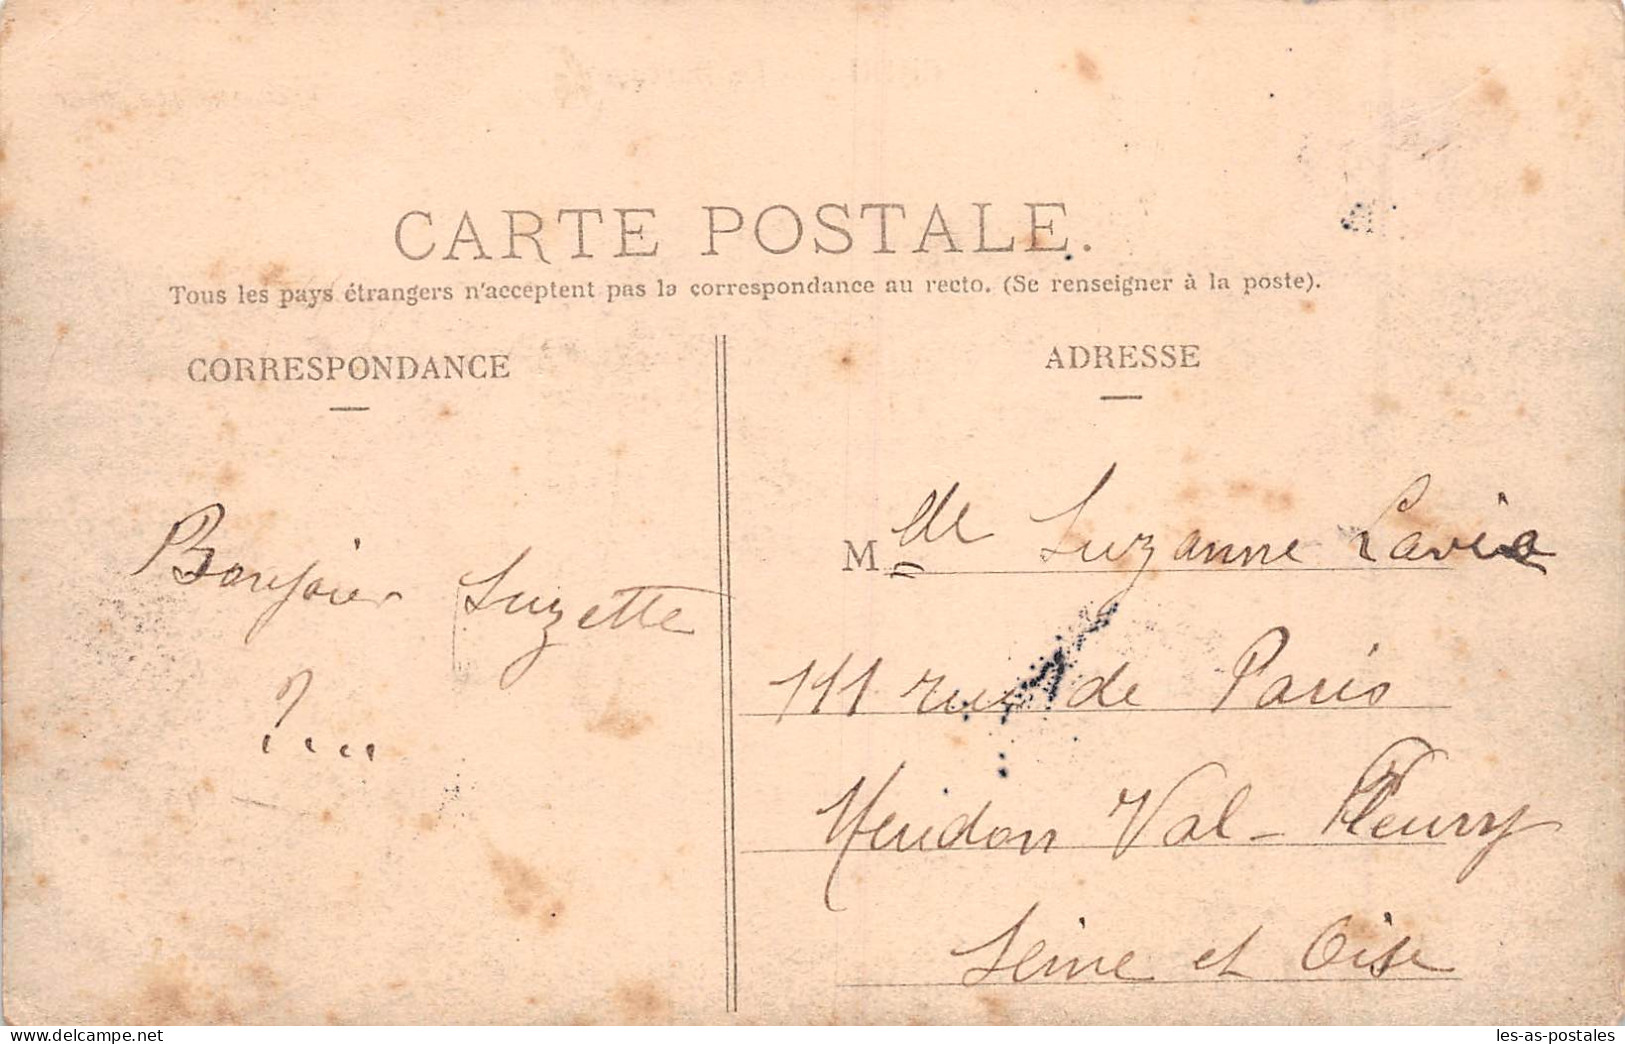 CARTE POSTALE.
Tous les pays étrangers n'acceptent pas la correspondance au recto. (Se renseigner à la poste).
CORRESPONDANCE
Bonjour Suzette
?....
ADRESSE
Mlle Suzanne
111 rue de Paris
Meudon Val-Fleury
Seine et Oise
delcampe.net
les-as-postales